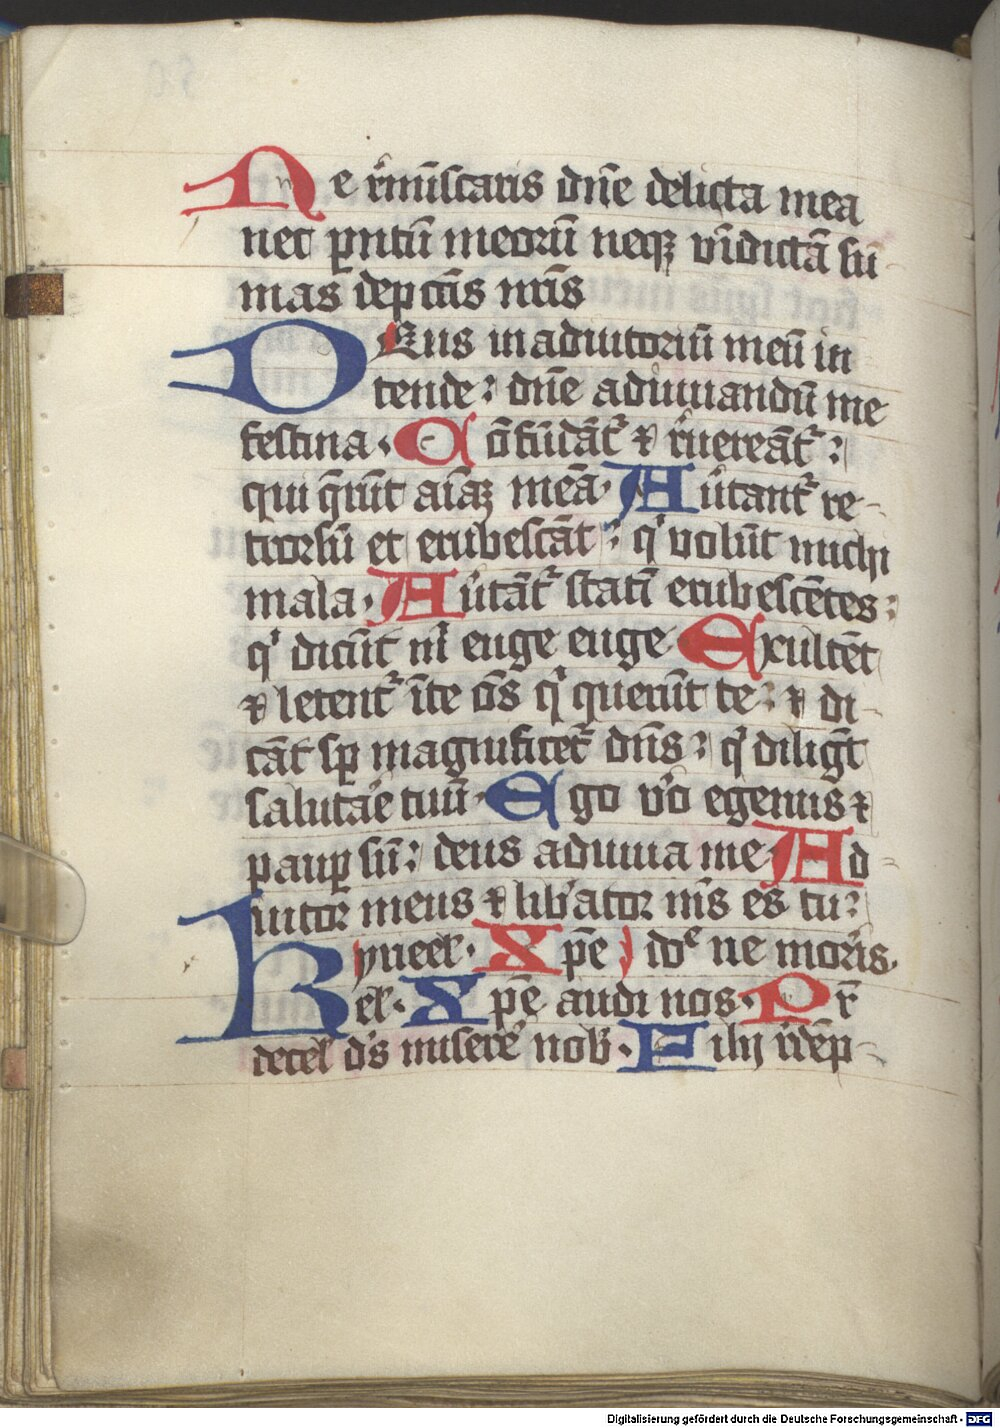 Ne r̄mīscaris dn̄e delicta mea
nec pn̄tū meorū neqꝫ vīdictā su
mas de pctīs meis
DEus in adiutoriū meū in
tende : dn̄e adiuuandū me
festina . Cōfūdāt᷑ ⁊ r̄uereāt᷑ :
qui q̄rūt aīaꝫ meā . Au͛tant᷑ re
trorsū et erubescāt : qͥ volūt michi
mala . Au͛tāt᷑ statī erubescētes :
qͥ dicūt mͥ euge euge Exultēt
⁊ letent᷑ ī te ōs qͥ querūt te : ⁊ di
cāt sꝑ magnificet᷑ dn̄s : qͥ diligūt
salutāe tuū . Ego vͦo egenus ⁊
pauꝑ sū : deus adiuua me Ad
iutor meus ⁊ lib͛ator m̄s es tu :
kyrieel . Xp̄e ido ne moris .
kel . Xp̄e audi nos . Pr̄
de cel ds̄ misere nob . Filij r̄dēp
Digitalisierung gefördert durch die Deutsche Forschungsgemeinschaft - DFG